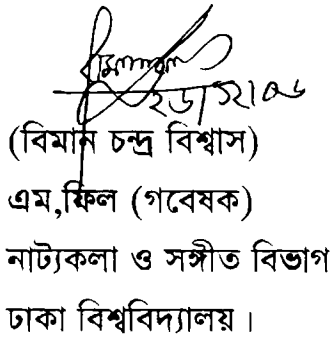 (বিমান চন্দ্র বিশ্বাস)
এম,ফিল (গবেষক)
নাট্যকলা ও সঙ্গীত বিভাগ
ঢাকা বিশ্ববিদ্যালয় ।